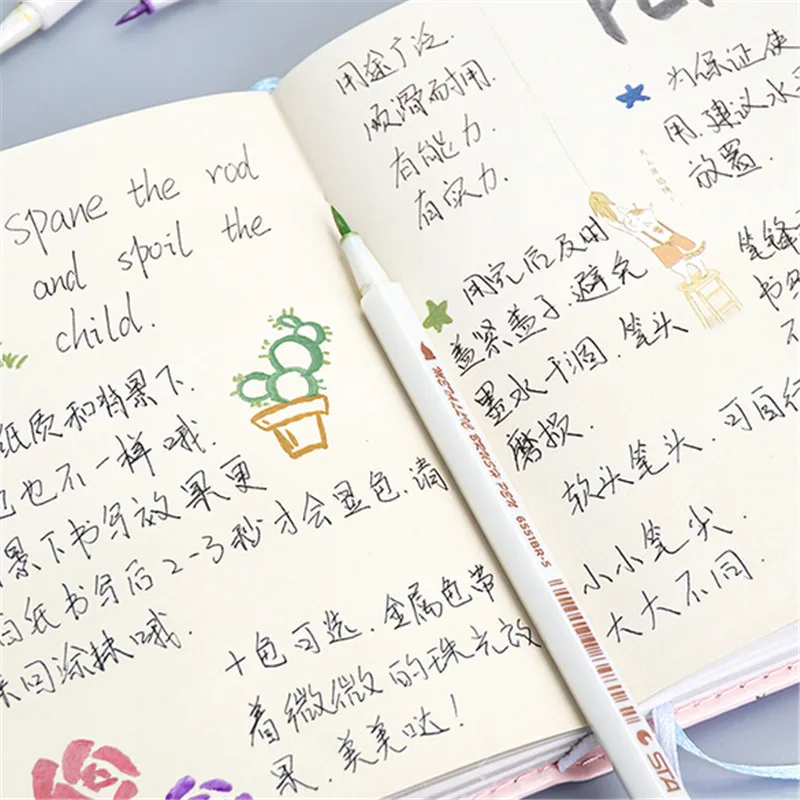 spane the rod
and spoil the
child.
纸质和背景下.
也不一样哦.
景下书写效果更
白纸书写后2-3秒才会显色.请
来回涂抹哦.
十色可选.金属色带
着微微的珠光效
果.美美哒!
用途广泛.
顺滑而耐用.
有能力.
有实力.
用完后及时
盖紧盖子.避免
墨水干涸.笔头
磨损.
软头笔头.可自行
小小笔尖.
大大不同.
为保证使
用.建议水平
放置.
笔锋
书写
不
METALLIC BRUSH PEN 6551BR-S
STA